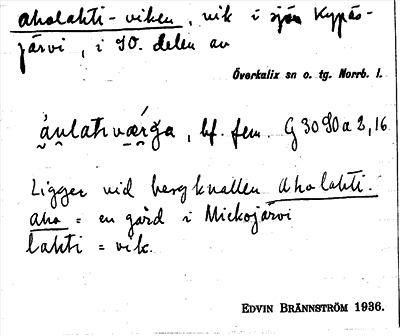 aholahti-viken, vik i sjön Kypäs-
järvi, i SO. delen av
Överkalix sn o. tg. Norrb. l.
bf. fem. G 30 90 a 2, 16
Ligger vid bergknallen aholahti.
aho = en gård i Mickojärvi
lahti = vik.
EDVIN BRÄNNSTRÖM 1936.